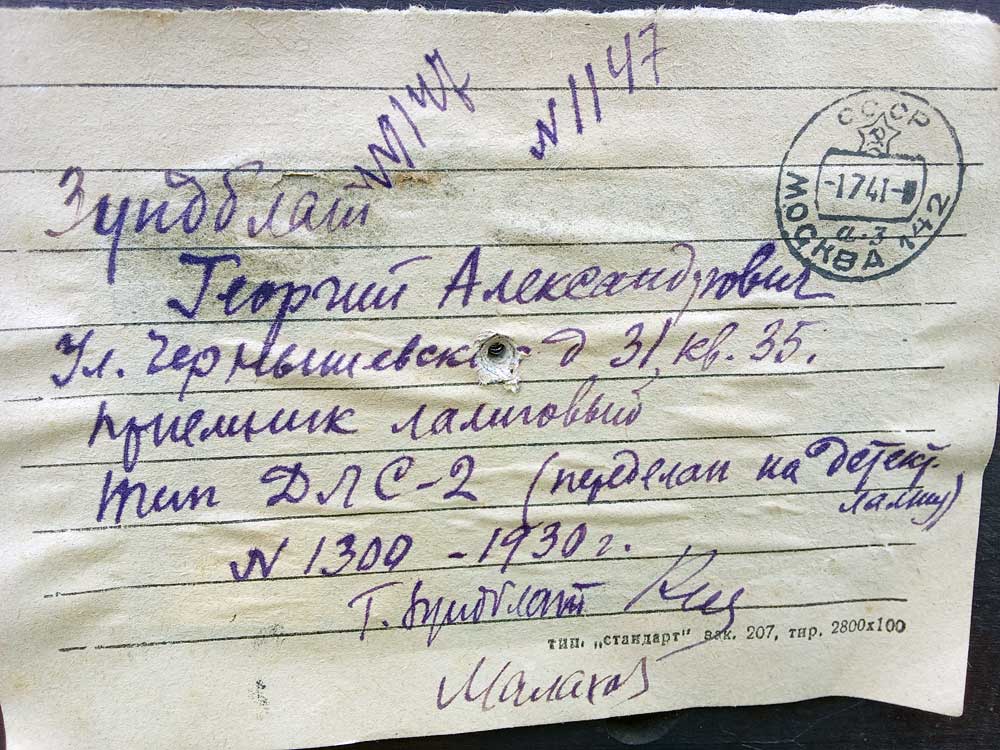 N 1147
СССР
-1.7.41-
а-з
МОСКВА 142
Зундблат
Георгий Александрович
Ул. Чернышевско - д 31, кв. 35.
приемник ламповый
тип ДЛС-2 (переделан на детект.
лампу)
N 1300 - 1930 г.
Г. Зундблат
тип. „стандарт" зак. 207, тир. 2800x100
Малахов